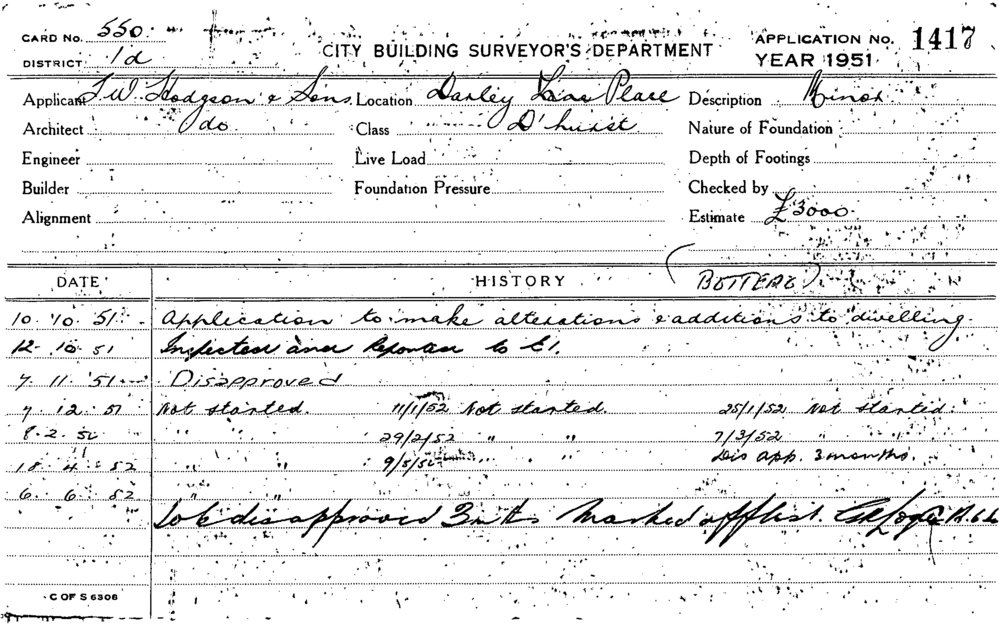 CARD No. 550.
DISTRICT 1d
CITY BUILDING SURVEYOR'S DEPARTMENT
APPLICATION No. 1417
YEAR 1951
Applicant T. W. Hodgson & Sons. Location Darley Place Description Minor
Architect do Class D'hurst Nature of Foundation
Engineer Live Load Depth of Footings
Builder Foundation Pressure Checked by
Alignment Estimate £3000.
DATE HISTORY (BOTTERO)
10. 10. 51. Application to make alterations & additions to dwelling.
12. 10. 51 Inspected and Reported to E1.
7. 11. 51 Disapproved
7 12 51 Not started. 11/1/52 Not started. 25/1/52 Not started.
8. 2. 52 " " 29/2/52 " " 7/3/52 " "
18 4 52 " " 9/5/52 " Dis app. 3 months.
6. 6. 52 " "
Job disapproved 3 mths Marked off list.
C OF S 6306